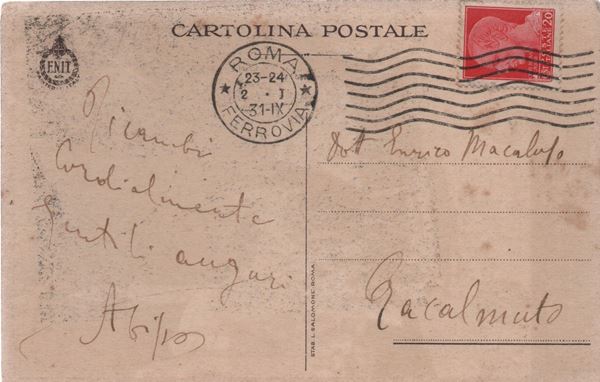 CARTOLINA POSTALE
ENIT
ROMA
23-24
2 · I
31-IX
FERROVIA
20
Dott Enrico Macaluso
Racalmuto
Ricambi
Cordialmente
gentili auguri
STAB. L. SALOMONE-ROMA